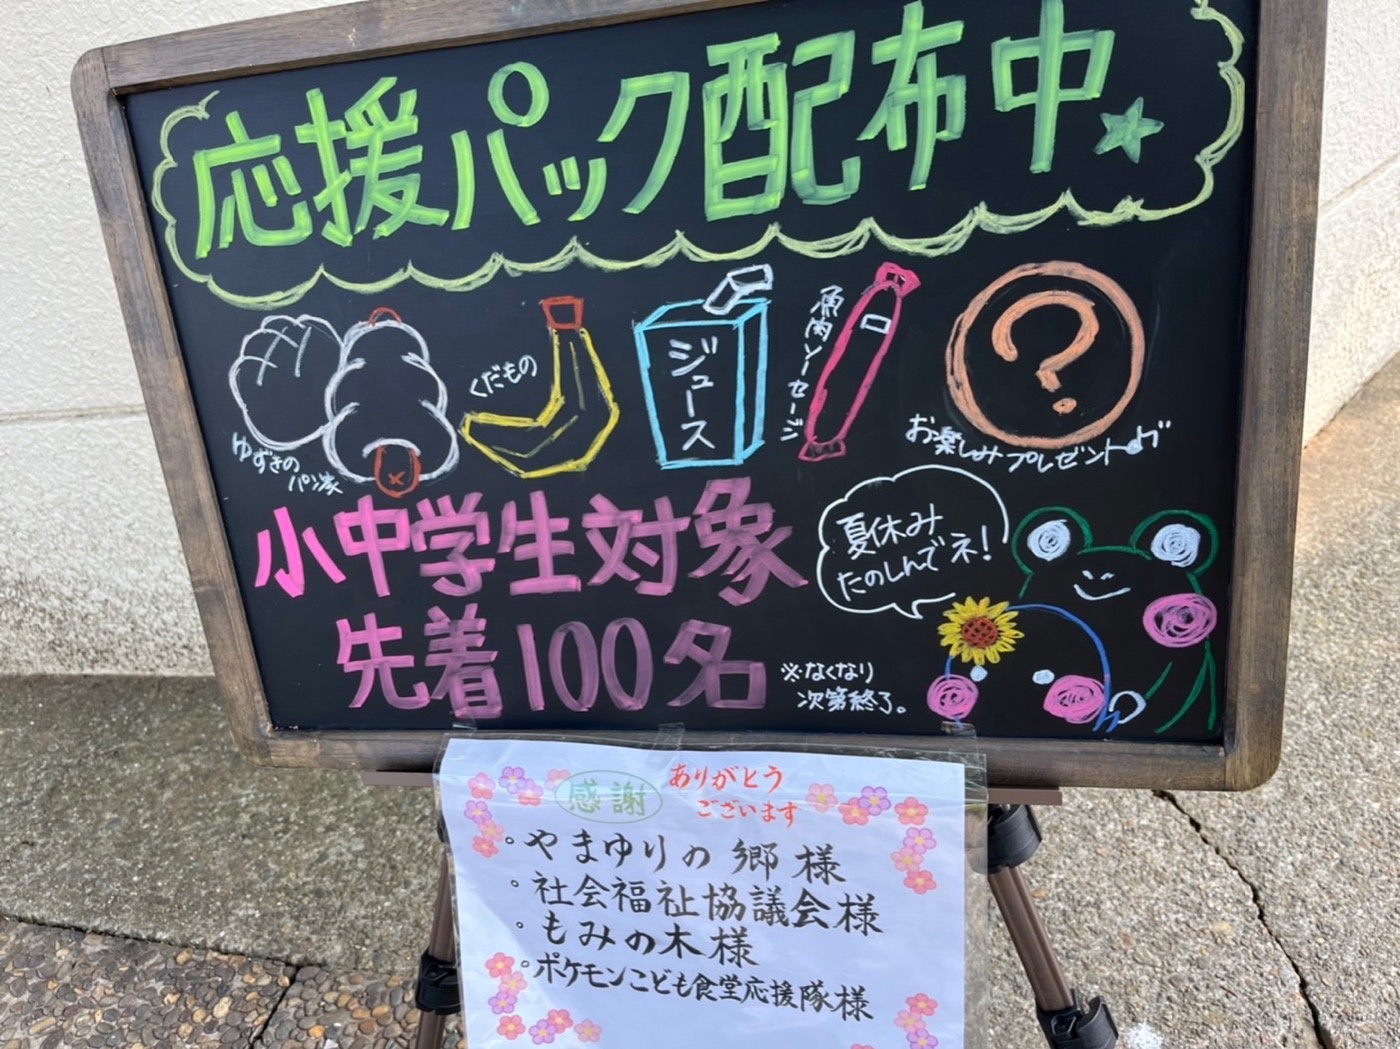 応援パック配布中
ゆずきの
パン
くだもの
ジュース
魚肉ソーセージ
?
お楽しみプレゼント
小中学生対象
先着100名
※なくなり
次第終了。
夏休み
たのしんでネ!
感謝
ありがとう
ございます
・やまゆりの郷様
・社会福祉協議会様
・もみの木様
・ポケモンこども食堂応援隊様